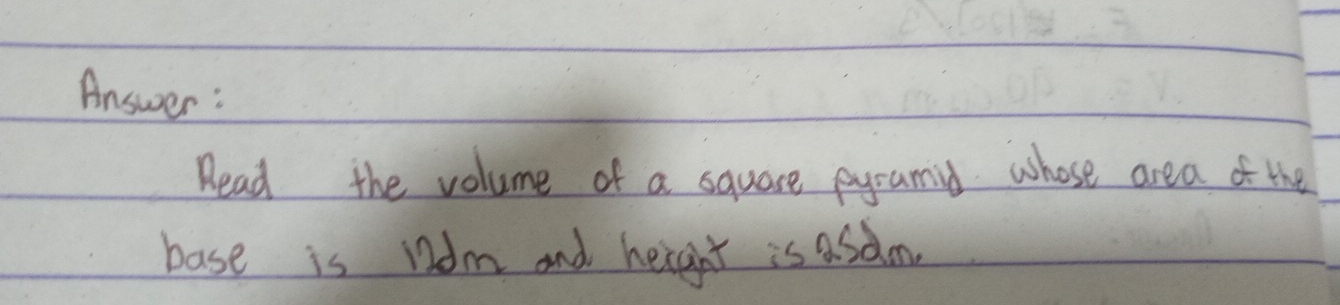 Answer:
Read the volume of a square pyramid whose area of the
base is 12dm and height is 25dm.